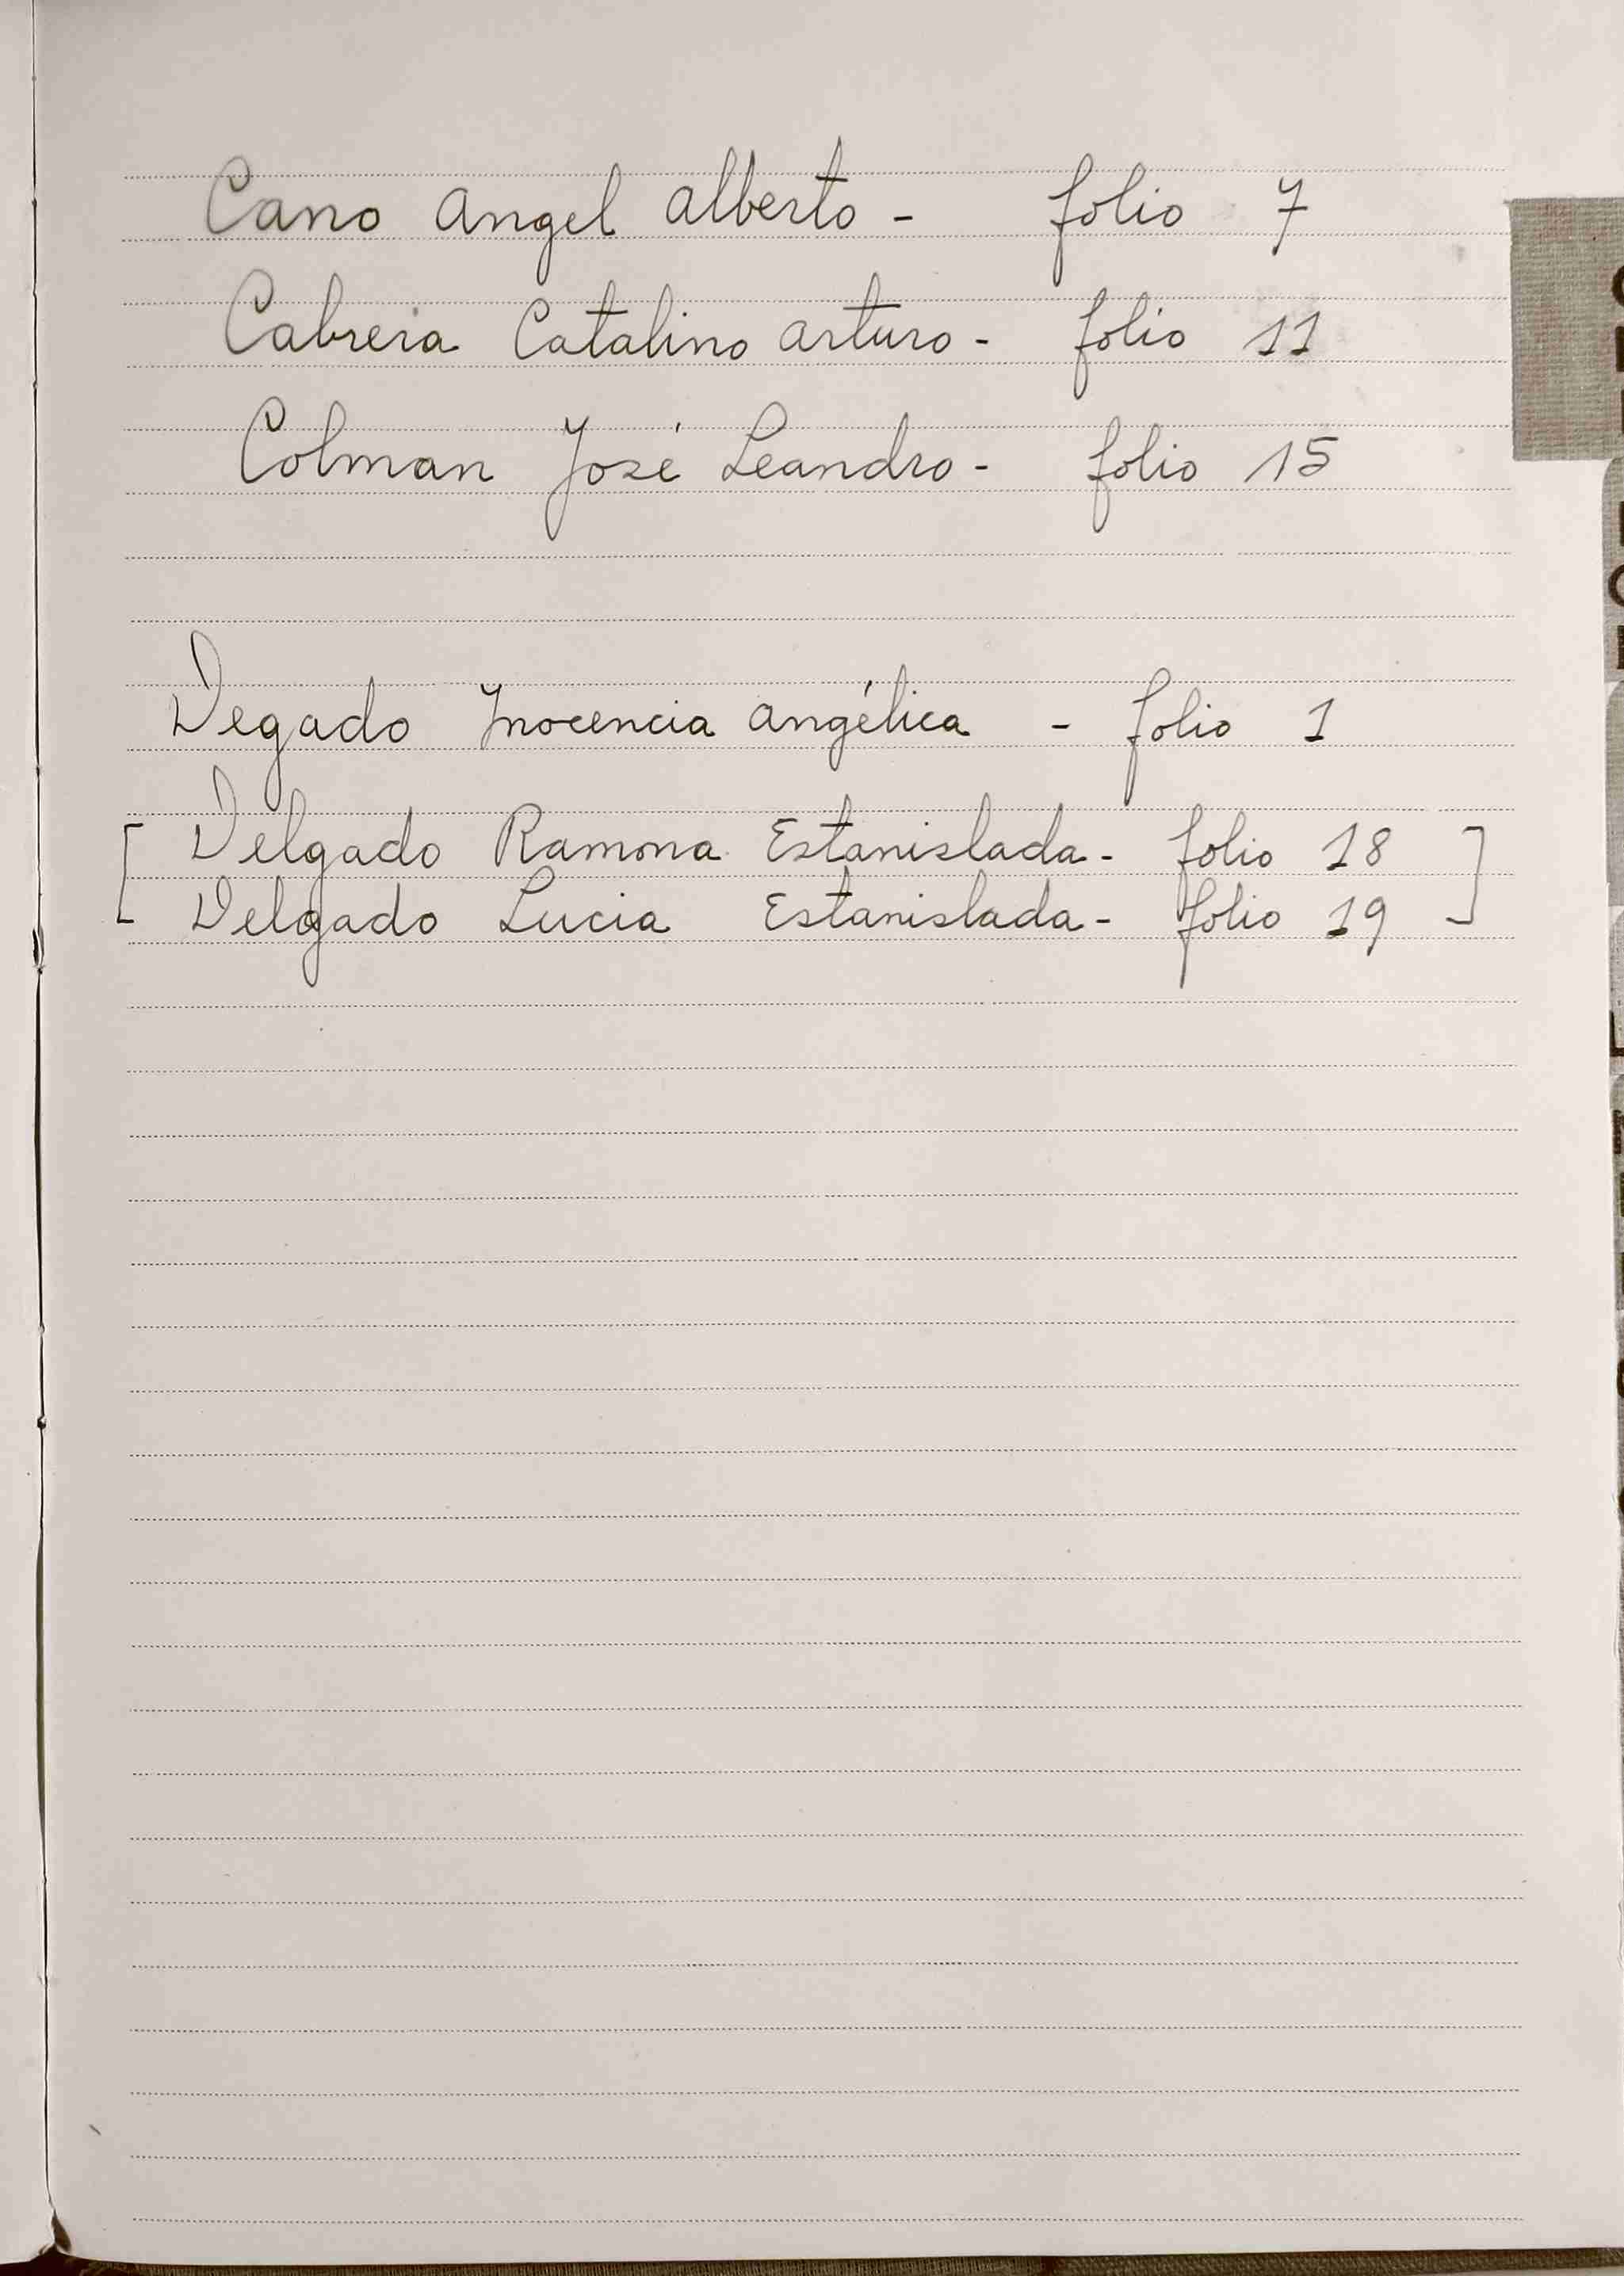 Cano Angel Alberto - folio 7
Cabrera Catalino Arturo - folio 11
Colman José Leandro - folio 15
Degado Inocencia Angélica - folio 1
[ Delgado Ramona Estanislada - folio 18 ]
Delgado Lucia Estanislada - folio 19